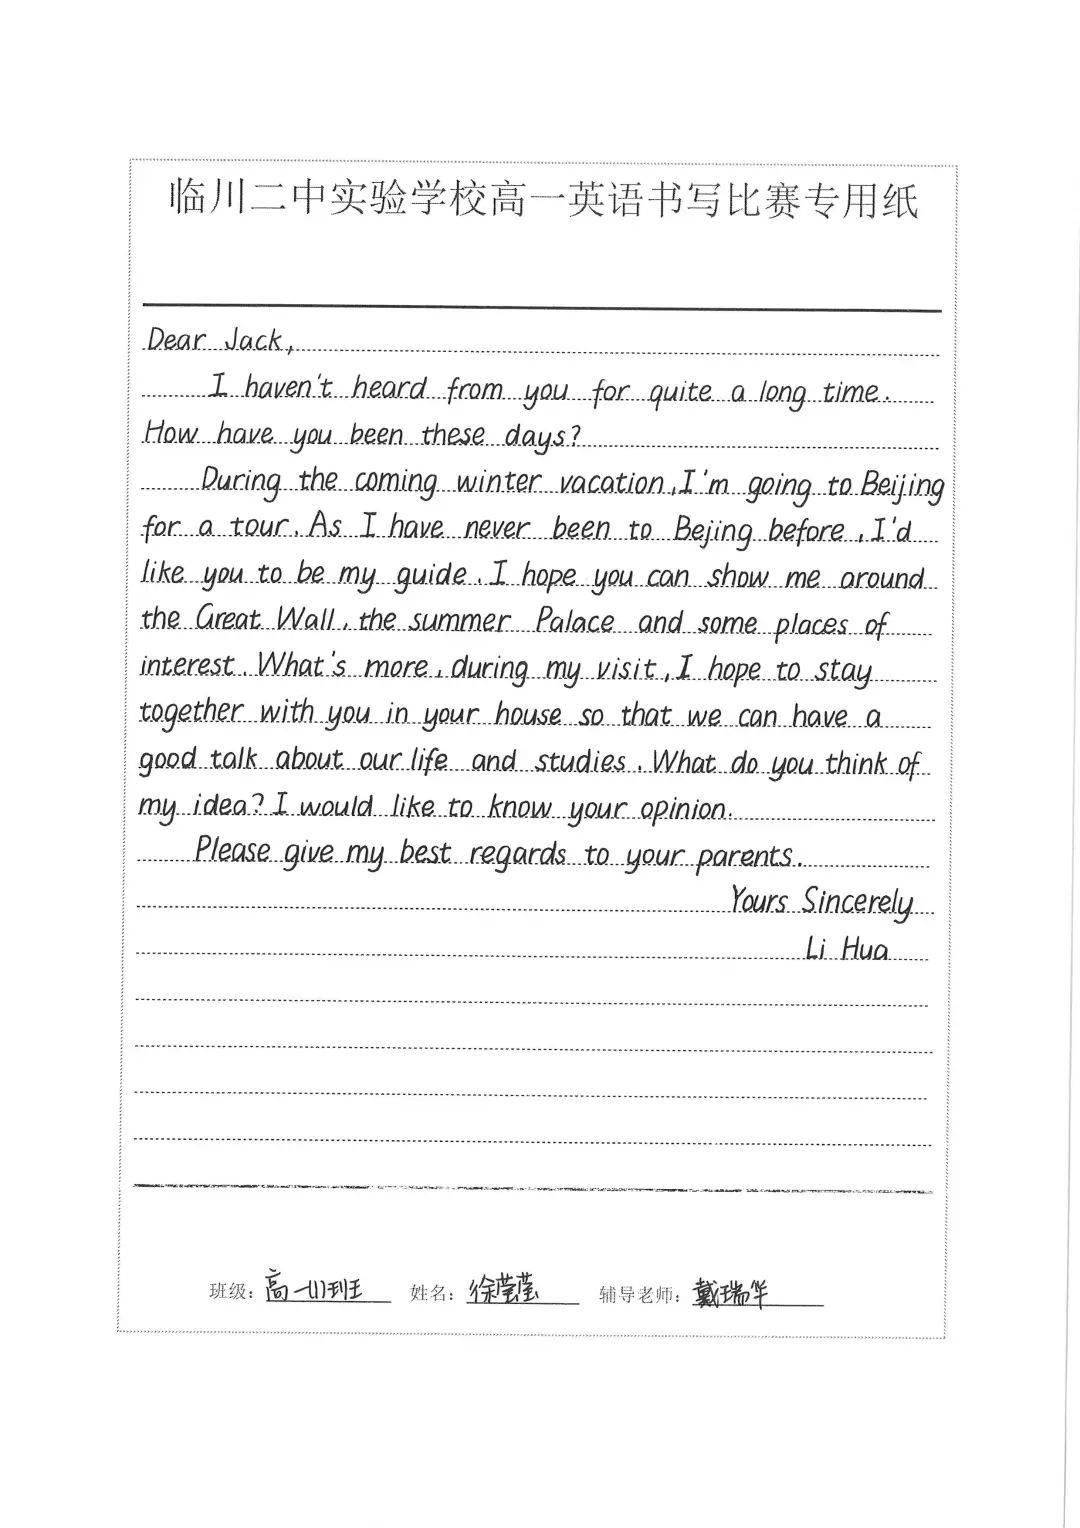 临川二中实验学校高一英语书写比赛专用纸
Dear Jack,
I haven't heard from you for quite a long time.
How have you been these days?
During the coming winter vacation, I'm going to Beijing
for a tour. As I have never been to Bejing before, I'd
like you to be my guide. I hope you can show me around
the Great Wall, the summer Palace and some places of
interest. What's more, during my visit, I hope to stay
together with you in your house so that we can have a
good talk about our life and studies. What do you think of
my idea? I would like to know your opinion.
Please give my best regards to your parents.
Yours Sincerely
Li Hua
班级: 高一班 姓名: 徐莹莹 辅导老师: 戴瑞华